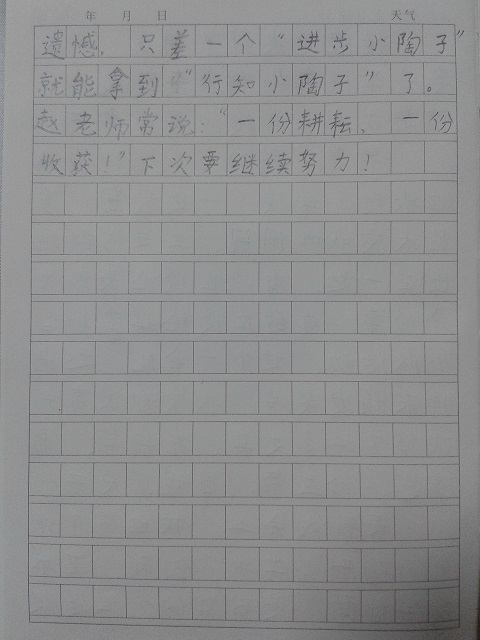 年 月 日 天气
遗憾，只差一个“进步小陶子”
就能拿到“行知小陶子”了。
赵老师常说：“一份耕耘，一份
收获！”下次要继续努力！